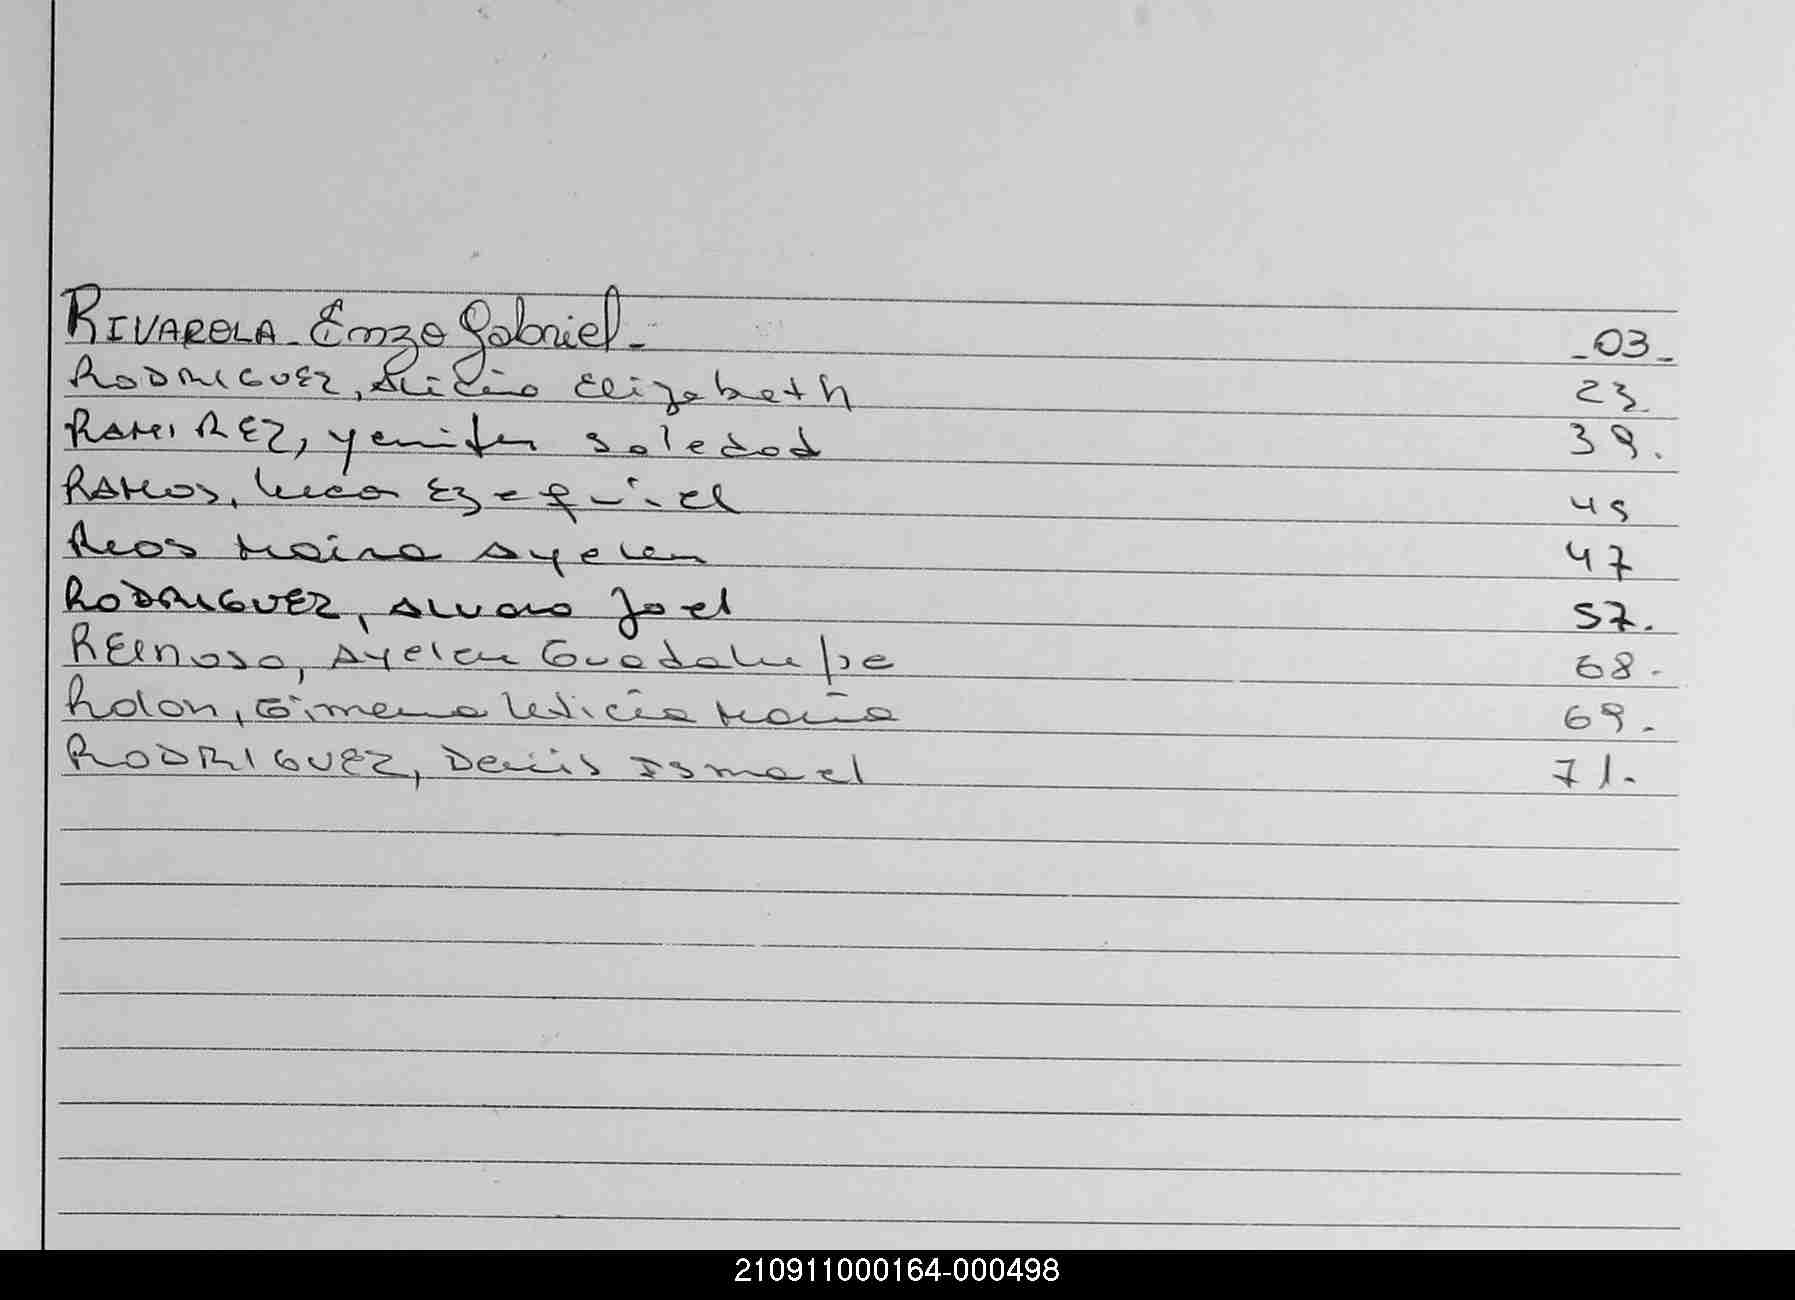 RIVAROLA - Enzo Gabriel - - 03 -
RODRIGUEZ, Alicia Elizabeth 23
RAMIREZ, Yenifer Soledad 39.
RAMOS, Luca Ezequiel 45
Rios Maira Ayelen 47
RODRIGUEZ, Alvaro Joel 57.
REInoso, Ayelen Guadalupe 68.
Rolon, Gimena Leticia Maria 69.
RODRIGUEZ, Denis Ismael 71.
210911000164-000498